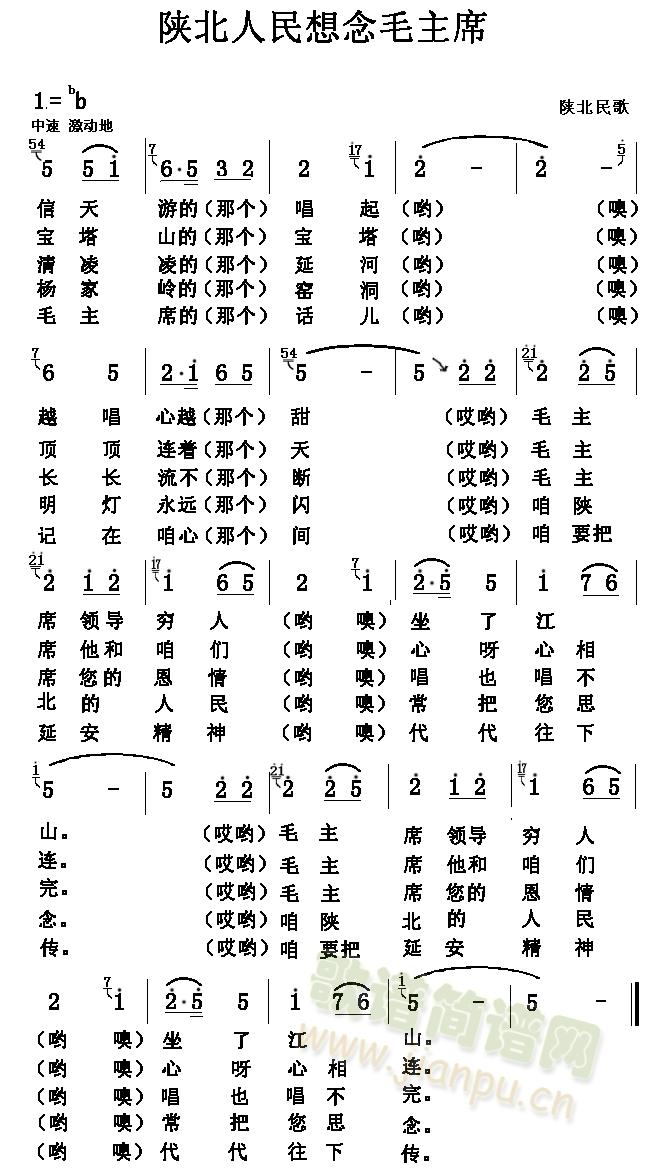 陕北人民想念毛主席
1.= bb
陕北民歌
中速 激动地
54 5 5 1 7 6·5 3 2 2 17 1 2 - 2 - 5
信天游的(那个)唱起(哟) (噢)
宝塔山的(那个)宝塔(哟) (噢)
清凌凌的(那个)延河(哟) (噢)
杨家岭的(那个)窑洞(哟) (噢)
毛主席的(那个)话儿(哟) (噢)
7 6 5 2·1 6 5 54 5 - 5 2 2 21 2 2 5
越唱心越(那个)甜 (哎哟)毛主
顶顶连着(那个)天 (哎哟)毛主
长长流不(那个)断 (哎哟)毛主
明灯永远(那个)闪 (哎哟)咱陕
记在咱心(那个)间 (哎哟)咱要把
21 2 1 2 17 1 6 5 2 7 1 2·5 5 1 7 6
席领导穷人 (哟 噢)坐了江
席他和咱们 (哟 噢)心呀心相
席您的恩情 (哟 噢)唱也唱不
北的人民 (哟 噢)常把您思
延安精神 (哟 噢)代代往下
1 5 - 5 2 2 21 2 2 5 2 1 2 17 1 6 5
山。 (哎哟)毛主席领导穷人
连。 (哎哟)毛主席他和咱们
完。 (哎哟)毛主席您的恩情
念。 (哎哟)咱陕北的人民
传。 (哎哟)咱要把延安精神
2 7 1 2·5 5 1 7 6 1 5 - 5 -
(哟 噢)坐了江山。
(哟 噢)心呀心相连。
(哟 噢)唱也唱不完。
(哟 噢)常把您思念。
(哟 噢)代代往下传。
歌谱简谱网
www.jianpu.cn